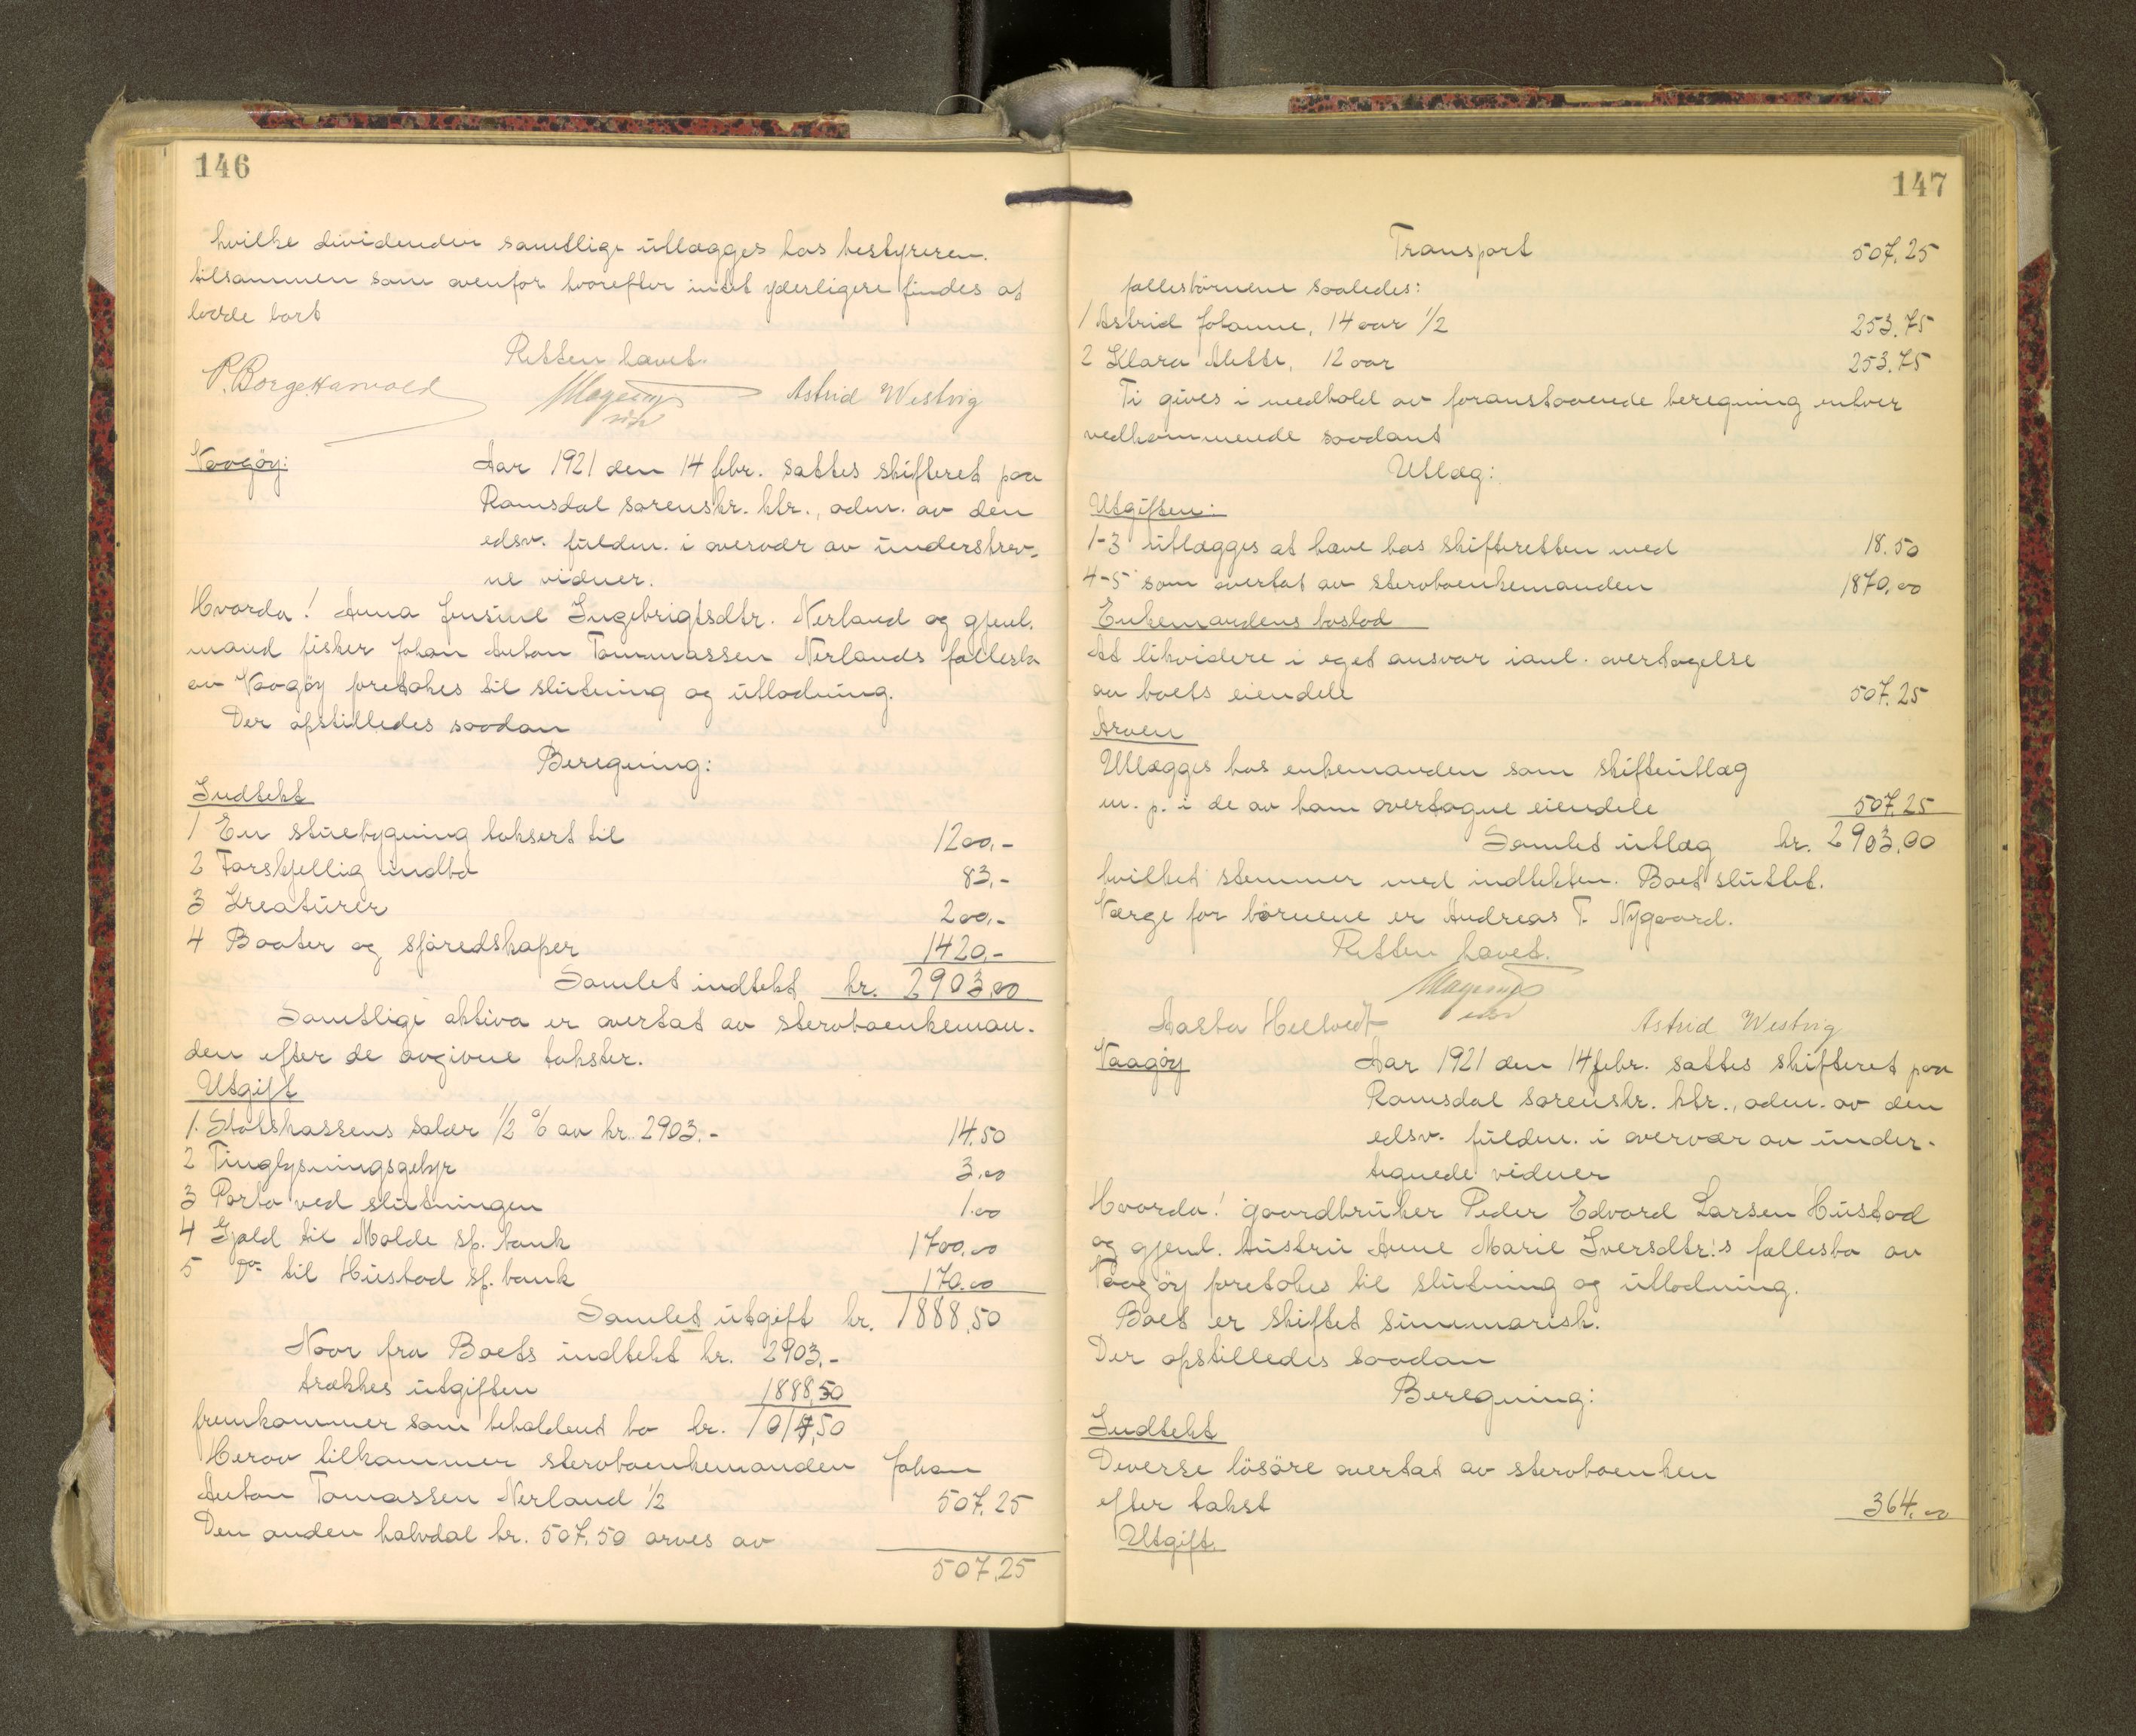 146
hvilke dividender samtlige utlægges hos bestyreren.
tilsammen som ovenfor hvorefter intet yderligere findes at
lodde bort
Retten hævet.
P. Borge Harvold
Astrid Westvig
Vaagöy:
Aar 1921 den 14 febr. sattes skifteret paa
Romsdal sorenskr. ktr., adm. av den
edsv. fuldm. i overvær av understrev-
ne vidner.
Hvorda! Anna Jensine Ingebrigtsdtr. Nerland og gjenl.
mand fisker Johan Anton Tommassen Nerlands fællesbo
av Vaagöy foretokes til slutning og utlodning.
Der opstilledes saadan
Beregning:
Indtekt
1 En stuebygning taksert til 1200,-
2 Forskjellig indbo 83,-
3 Kreaturer 200,-
4 Baater og sjöredskaper 1420,-
Samlet indtekt kr. 2903,00
Samtlige aktiva er overtat av stervboenkeman-
den efter de avgivne takster.
Utgift
1. Statskassens salær 1/2 % av kr. 2903.- 14.50
2 Tinglysningsgebyr 3,00
3 Porto ved slutningen 1.00
4 Gjæld til Molde sp. bank 1700,00
5 do. til Hustad sp. bank 170.00
Samlet utgift kr. 1888,50
Naar fra Boets indtekt kr. 2903,-
trækkes utgiften 1888,50
fremkommer som beholdent bo kr. 1014,50
Herav tilkommer stervboenkemanden Johan
Anton Tomassen Nerland 1/2 507,25
Den anden halvdal kr. 507,50 arves av
507,25
147
Transport 507,25
fællesbörnene saaledes:
1 Astrid Johanne, 14 aar 1/2 253.75
2 Klara Mette, 12 aar 253.75
Ti gives i medhold av foranstaaende beregning enhver
vedkommende saadant
Utlæg:
Utgiften:
1-3 utlægges at hæve hos skifteretten med 18.50
4-5 som overtat av stervboenkemanden 1870,00
Enkemandens boslod
At likvidere i eget ansvar ianl. overtagelse
av boets eiendele 507.25
Arven
Utlægges hos enkemanden som skifteutlæg
m. p. i de av ham overtagne eiendele 507,25
Samlet utlæg kr. 2903,00
hvilket stemmer med indtekten. Boet sluttet.
Værge for börnene er Andreas T. Nygaard.
Retten hævet.
Aasta Heltvedt
Astrid Westvig
Vaagöy
Aar 1921 den 14 febr. sattes skifteret paa
Romsdal sorenskr. ktr., adm. av den
edsv. fuldm. i overvær av under-
tegnede vidner
Hvorda! gaardbruker Peder Edvard Larsen Hustad
og gjenl. hustru Anne Marie Iversdtr:s fællesbo av
Vaagöy foretokes til slutning og utlodning.
Boet er skiftet summarisk.
Der opstilledes saadan
Beregning:
Indtekt
Diverse lösöre overtat av stervboenken
efter takst 364.00
Utgift.